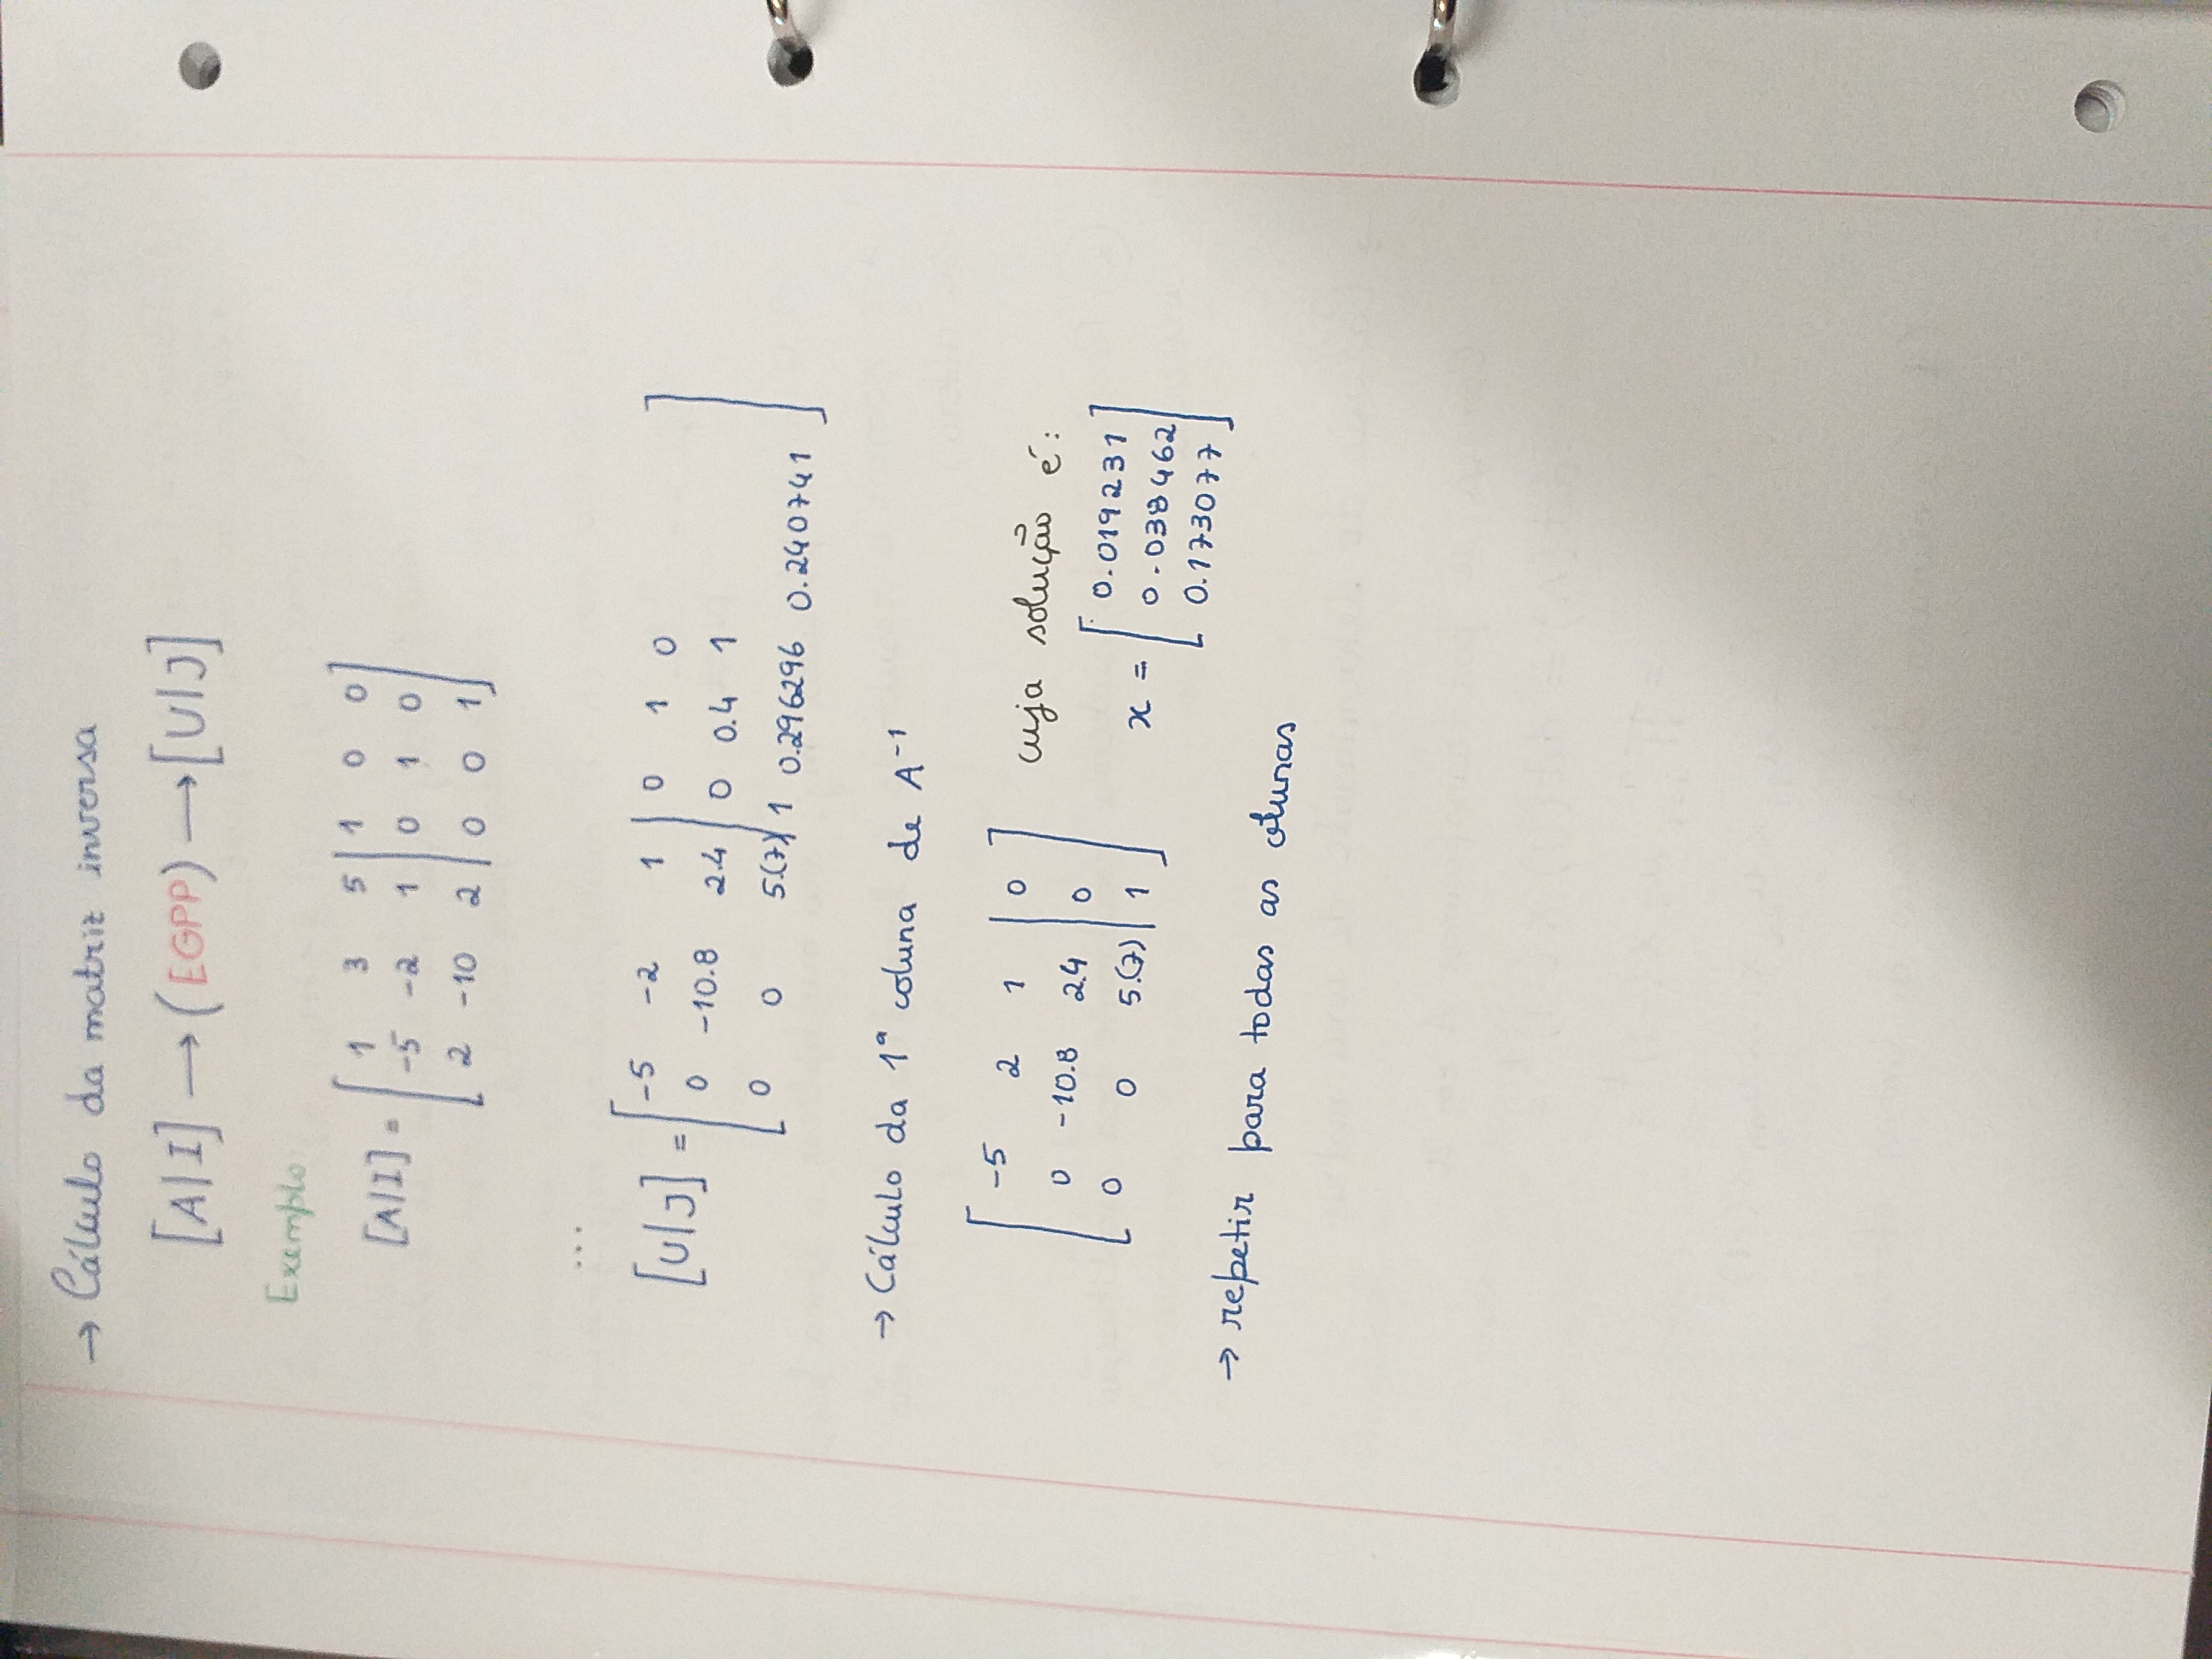 → Cálculo da matriz inversa
[A|I] → (EGPP) → [U|J]
Exemplo:
[A|I] = [ 1 3 5 | 1 0 0
-5 -2 1 | 0 1 0
2 -10 2 | 0 0 1 ]
...
[U|J] = [ -5 -2 1 | 0 1 0
0 -10.8 2.4 | 0 0.4 1
0 0 5.(7) | 1 0.296296 0.240741 ]
→ Cálculo da 1ª coluna de A⁻¹
[ -5 2 1 | 0
0 -10.8 2.4 | 0
0 0 5.(7) | 1 ]
cuja solução é:
x = [ 0.019231
0.038462
0.173077 ]
→ repetir para todas as colunas